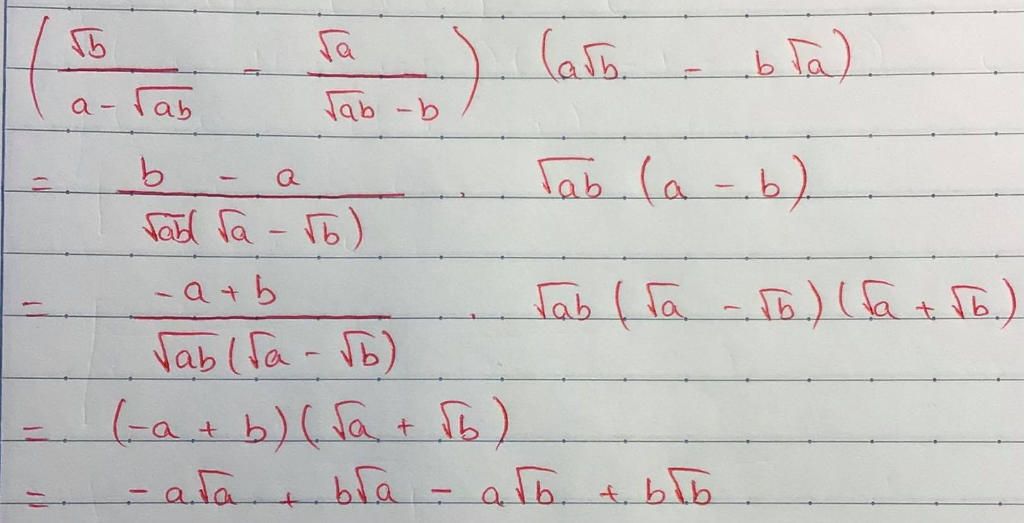 (√b/(a - √ab) - √a/(√ab - b)) . (a√b - b√a)
= (b - a)/(√ab(√a - √b)) . √ab (a - b)
= (-a + b)/(√ab(√a - √b)) . √ab (√a - √b)(√a + √b)
= (-a + b)(√a + √b)
= -a√a + b√a - a√b + b√b